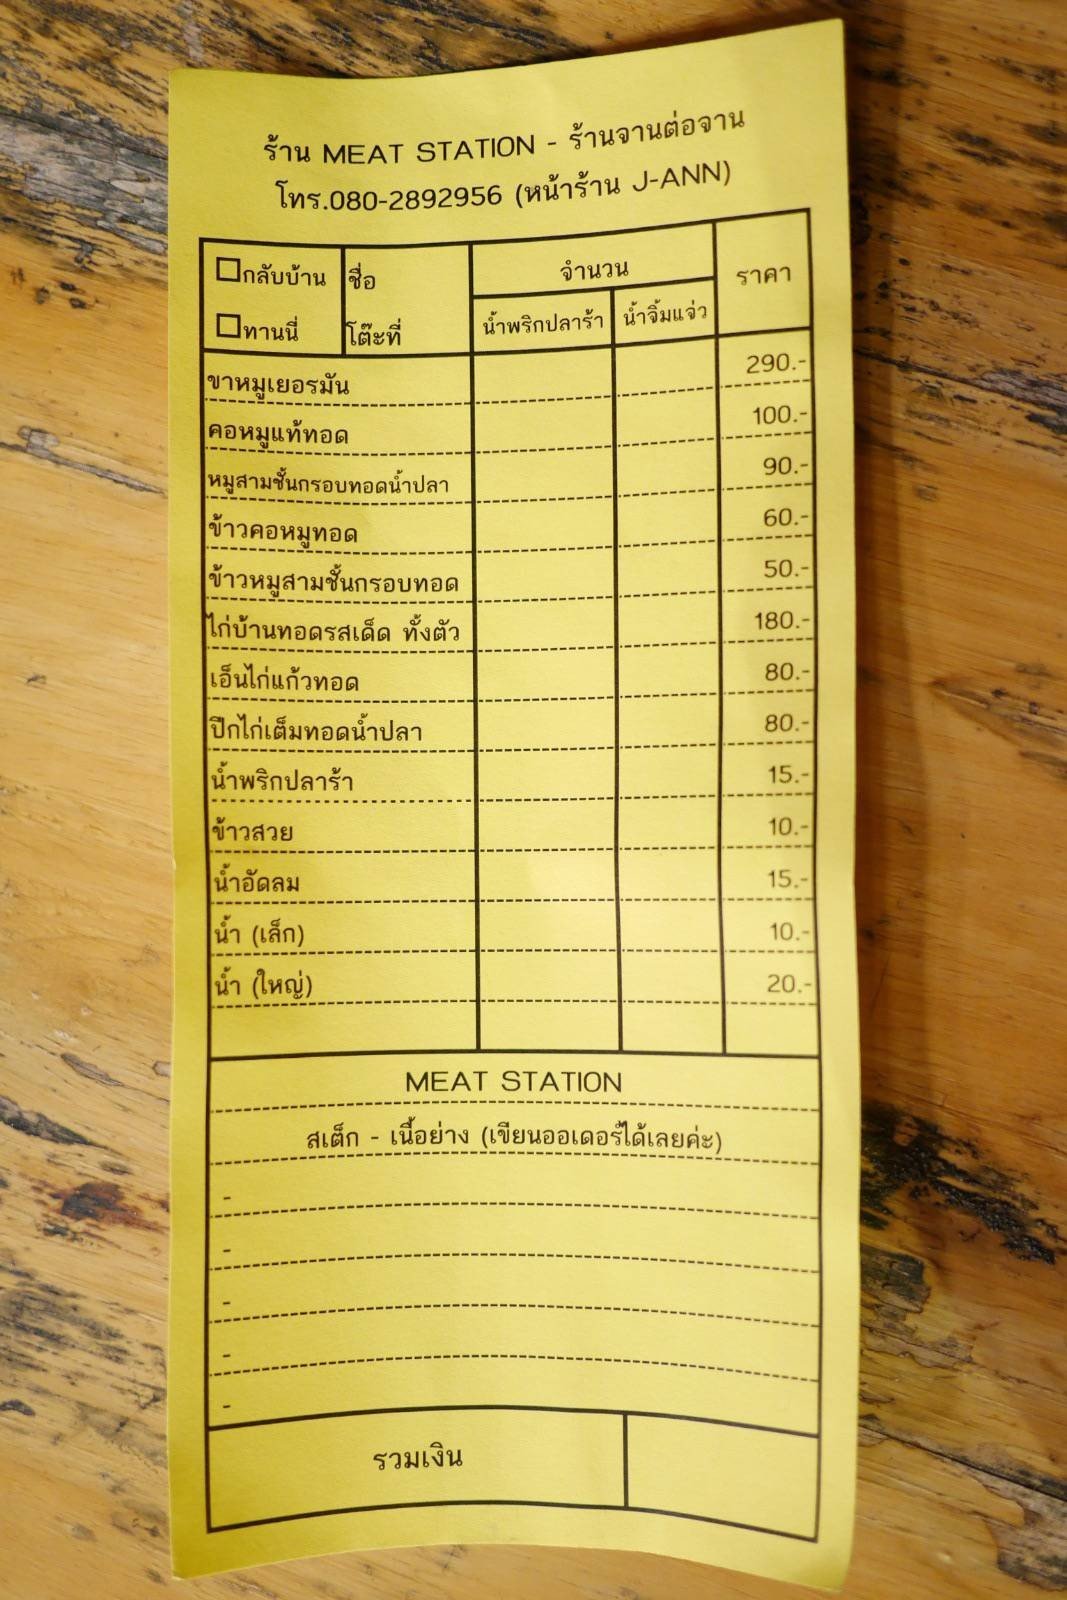 ร้าน MEAT STATION - ร้านจานต่อจาน
โทร.080-2892956 (หน้าร้าน J-ANN)
กลับบ้าน ชื่อ จำนวน ราคา
ทานนี่ โต๊ะที่ น้ำพริกปลาร้า น้ำจิ้มแจ่ว
ขาหมูเยอรมัน 290.-
คอหมูแท้ทอด 100.-
หมูสามชั้นกรอบทอดน้ำปลา 90.-
ข้าวคอหมูทอด 60.-
ข้าวหมูสามชั้นกรอบทอด 50.-
ไก่บ้านทอดรสเด็ด ทั้งตัว 180.-
เอ็นไก่แก้วทอด 80.-
ปีกไก่เต็มทอดน้ำปลา 80.-
น้ำพริกปลาร้า 15.-
ข้าวสวย 10.-
น้ำอัดลม 15.-
น้ำ (เล็ก) 10.-
น้ำ (ใหญ่) 20.-
MEAT STATION
สเต็ก - เนื้อย่าง (เขียนออเดอร์ได้เลยค่ะ)
-
-
-
-
-
รวมเงิน